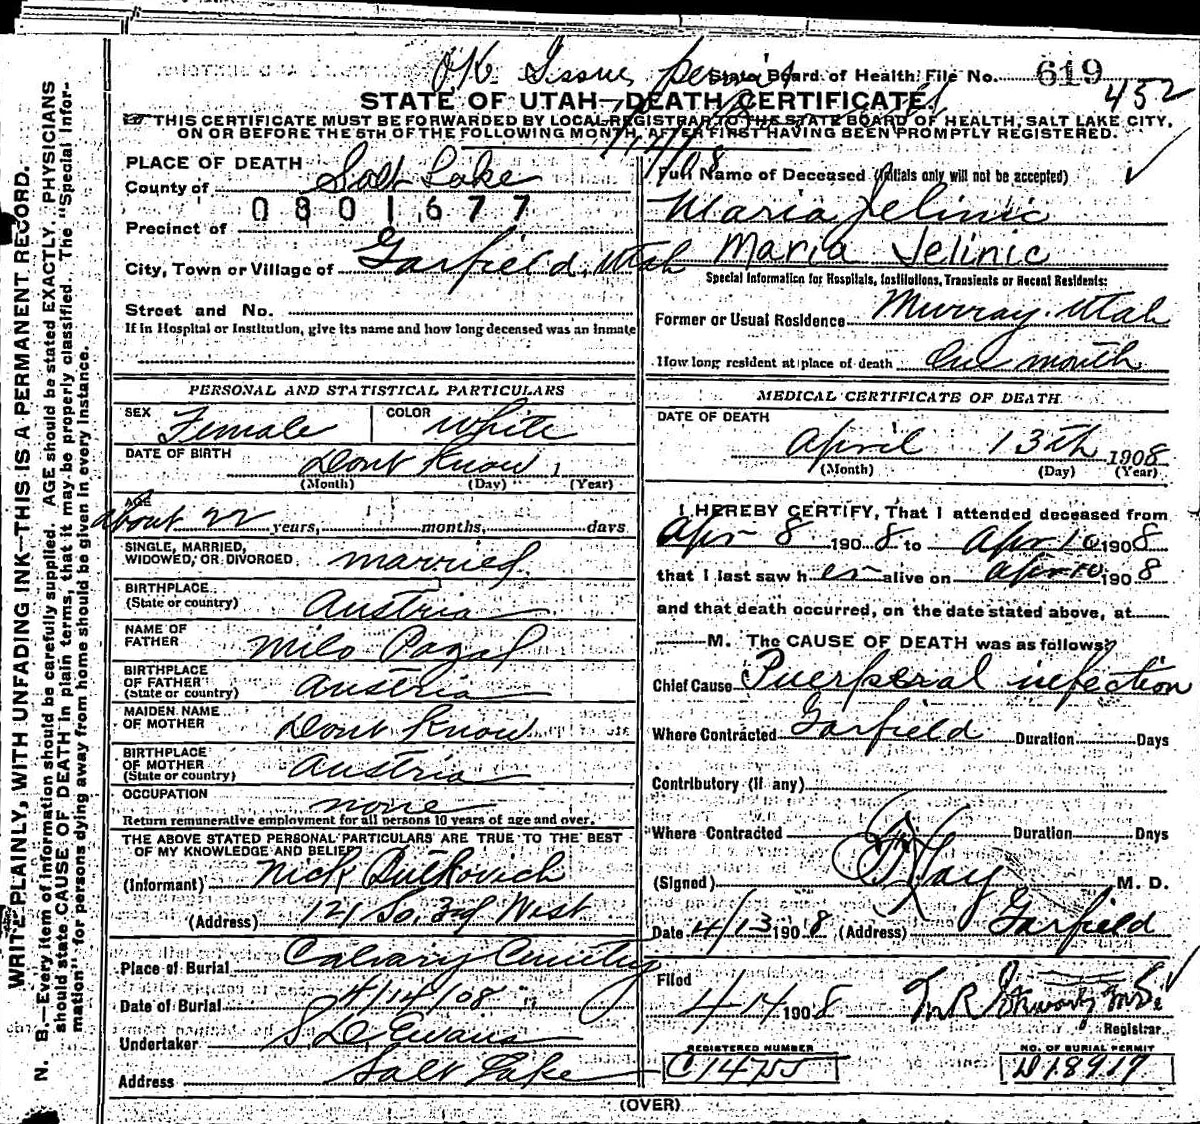 OK Issue permit
State Board of Health File No. 619
452
STATE OF UTAH—DEATH CERTIFICATE
THIS CERTIFICATE MUST BE FORWARDED BY LOCAL REGISTRAR TO THE STATE BOARD OF HEALTH, SALT LAKE CITY,
ON OR BEFORE THE 5TH OF THE FOLLOWING MONTH, AFTER FIRST HAVING BEEN PROMPTLY REGISTERED.
PLACE OF DEATH
County of Salt Lake
0301677
Precinct of
City, Town or Village of Garfield, Utah
Street and No.
If in Hospital or Institution, give its name and how long deceased was an inmate
Full Name of Deceased (Initials only will not be accepted)
Maria Jelinic
Maria Jelinic
Special Information for Hospitals, Institutions, Transients or Recent Residents:
Former or Usual Residence Murray. Utah
How long resident at place of death One month
PERSONAL AND STATISTICAL PARTICULARS
SEX Female COLOR White
DATE OF BIRTH Dont Know
(Month) (Day) (Year)
AGE
about 22 years, months, days
SINGLE, MARRIED,
WIDOWED, OR DIVORCED married
BIRTHPLACE
(State or country) Austria
NAME OF
FATHER Milo Pazal
BIRTHPLACE
OF FATHER
(State or country) Austria
MAIDEN NAME
OF MOTHER Dont Know
BIRTHPLACE
OF MOTHER
(State or country) Austria
OCCUPATION none
Return remunerative employment for all persons 10 years of age and over.
THE ABOVE STATED PERSONAL PARTICULARS ARE TRUE TO THE BEST
OF MY KNOWLEDGE AND BELIEF
(Informant) Nick Dutkovich
(Address) 121 So. 3rd West
Place of Burial Calvary Cemetry
Date of Burial 4/14/08
Undertaker S. D. Evans
Address Salt Lake
MEDICAL CERTIFICATE OF DEATH
DATE OF DEATH
April 13th 1908
(Month) (Day) (Year)
I HEREBY CERTIFY, That I attended deceased from
Apr 8 1908 to Apr 10 1908
that I last saw her alive on Apr 10 1908
and that death occurred, on the date stated above, at
M. The CAUSE OF DEATH was as follows:
Chief Cause Puerperal infection
Where Contracted Garfield Duration Days
Contributory (if any)
Where Contracted Duration Days
(Signed) Hay M. D.
Date 4/13 1908 (Address) Garfield
Filed
4-14 1908
Registrar
REGISTERED NUMBER
C1475J
NO. OF BURIAL PERMIT
D18917
(OVER)
WRITE PLAINLY, WITH UNFADING INK—THIS IS A PERMANENT RECORD.
N. B.—Every item of information should be carefully supplied. AGE should be stated EXACTLY. PHYSICIANS
should state CAUSE OF DEATH in plain terms, that it may be properly classified. The "Special Infor-
mation" for persons dying away from home should be given in every instance.